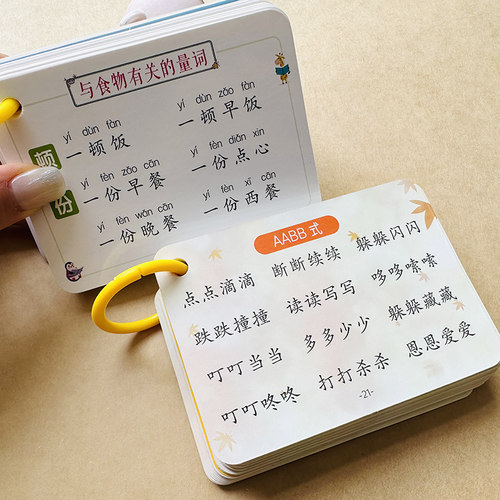 与食物有关的量词
yí dùn fàn yí dùn zǎo fàn
一顿饭 一顿早饭
顿
yí fèn zǎo cān yí fèn diǎn xin
一份早餐 一份点心
份
yí fèn wǎn cān yí fèn xī cān
一份晚餐 一份西餐
AABB 式
点点滴滴 断断续续 躲躲闪闪
跌跌撞撞 读读写写 哆哆嗦嗦
叮叮当当 多多少少 躲躲藏藏
叮叮咚咚 打打杀杀 恩恩爱爱
-21-